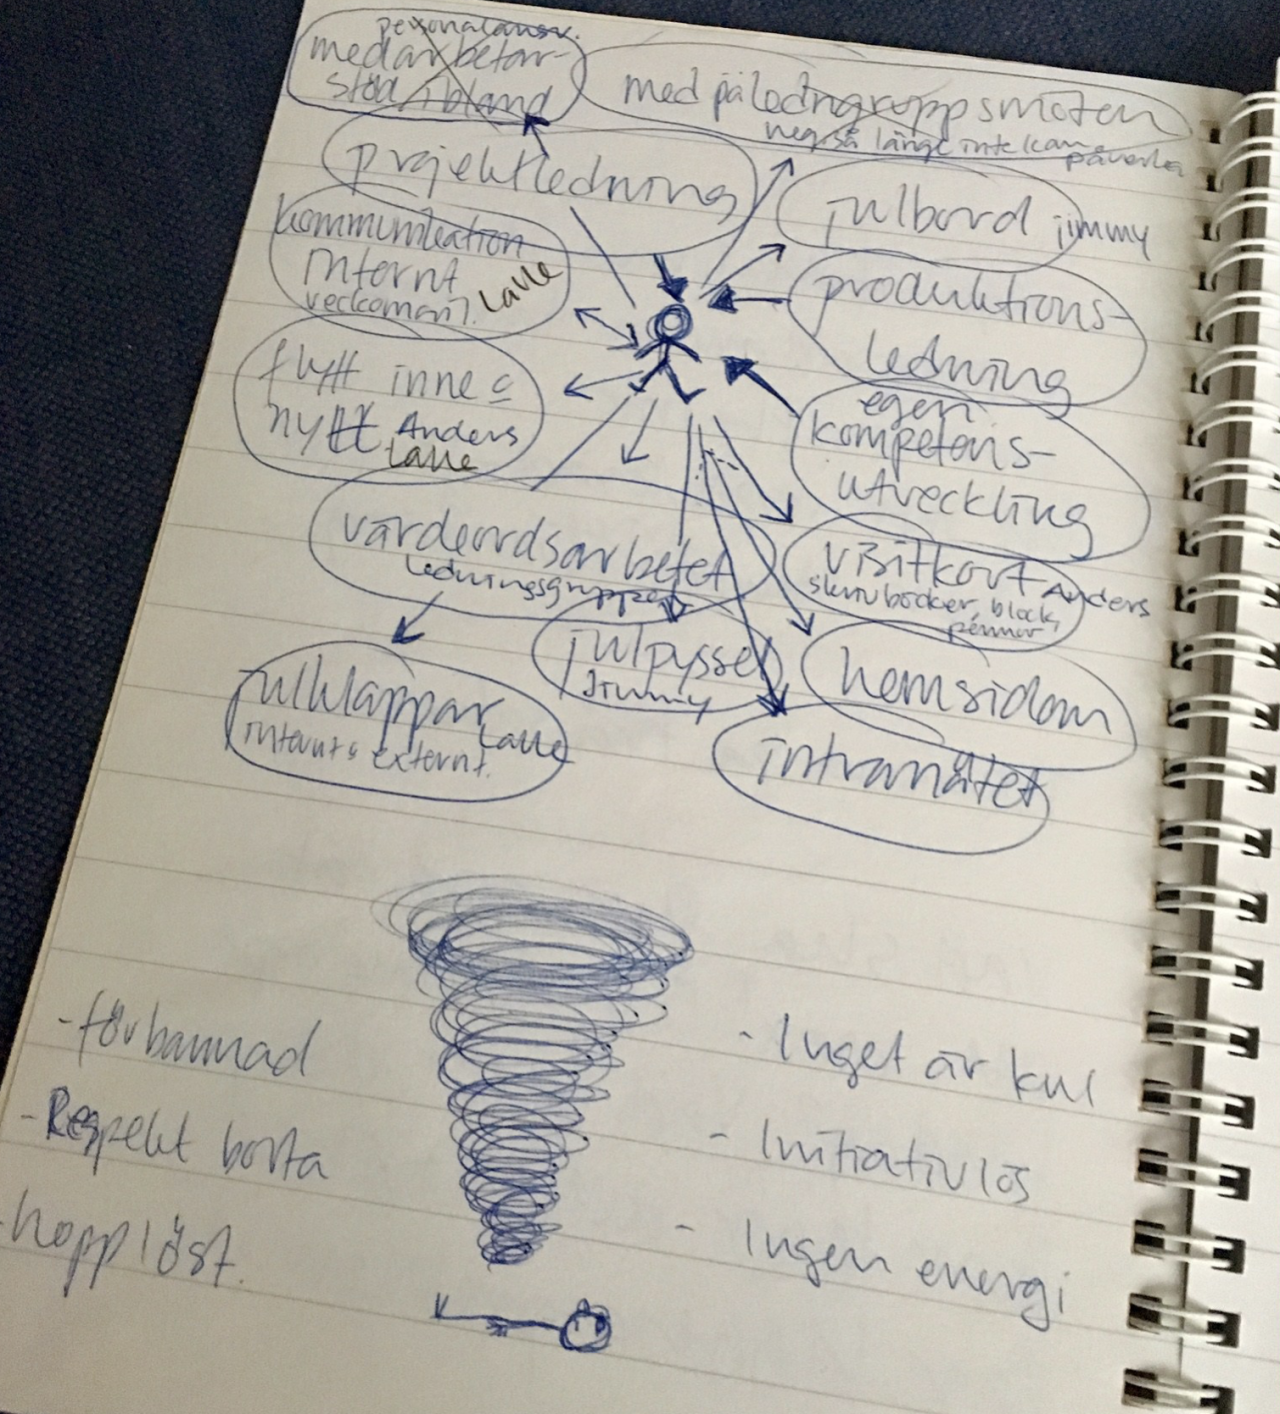 personalansv.
medarbetar-
stöd ibland
med på ledngruppsmöten
neg. så länge inte kan
påverka
projektledning
julbord jimmy
kommunikation
internt
veckoman
produktions-
ledning
flytt inne &
nytt Anders
egen
kompetens-
utveckling
värdeordsarbetet
ledningsgruppen
visitkort Anders
skrivböcker, block,
pennor
julpyssel
Jimmy
hemsidan
julklappar
internt & externt.
intranätet
- förbannad
- Inget är kul
- Respekt borta
- Initiativlös
- hopplöst.
- Ingen energi